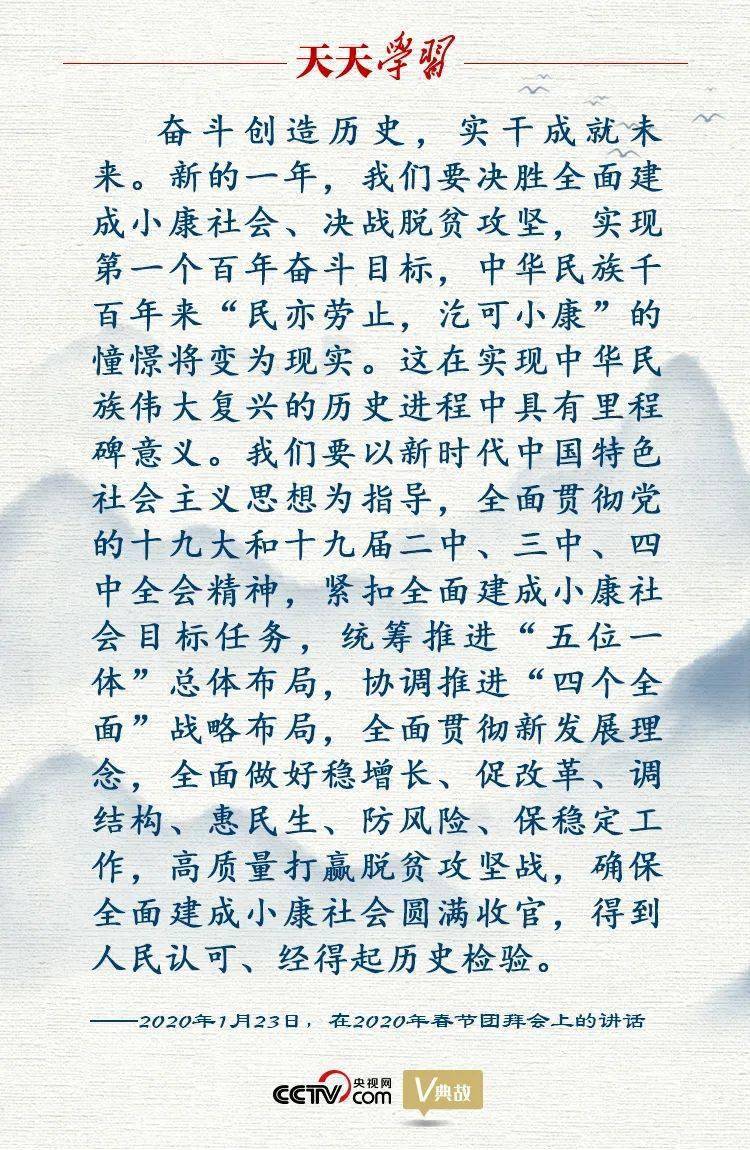 天天學習
奋斗创造历史，实干成就未
来。新的一年，我们要决胜全面建
成小康社会、决战脱贫攻坚，实现
第一个百年奋斗目标，中华民族千
百年来“民亦劳止，汔可小康”的
憧憬将变为现实。这在实现中华民
族伟大复兴的历史进程中具有里程
碑意义。我们要以新时代中国特色
社会主义思想为指导，全面贯彻党
的十九大和十九届二中、三中、四
中全会精神，紧扣全面建成小康社
会目标任务，统筹推进“五位一
体”总体布局，协调推进“四个全
面”战略布局，全面贯彻新发展理
念，全面做好稳增长、促改革、调
结构、惠民生、防风险、保稳定工
作，高质量打赢脱贫攻坚战，确保
全面建成小康社会圆满收官，得到
人民认可、经得起历史检验。
——2020年1月23日，在2020年春节团拜会上的讲话
CCTV.com 央视网 V典故